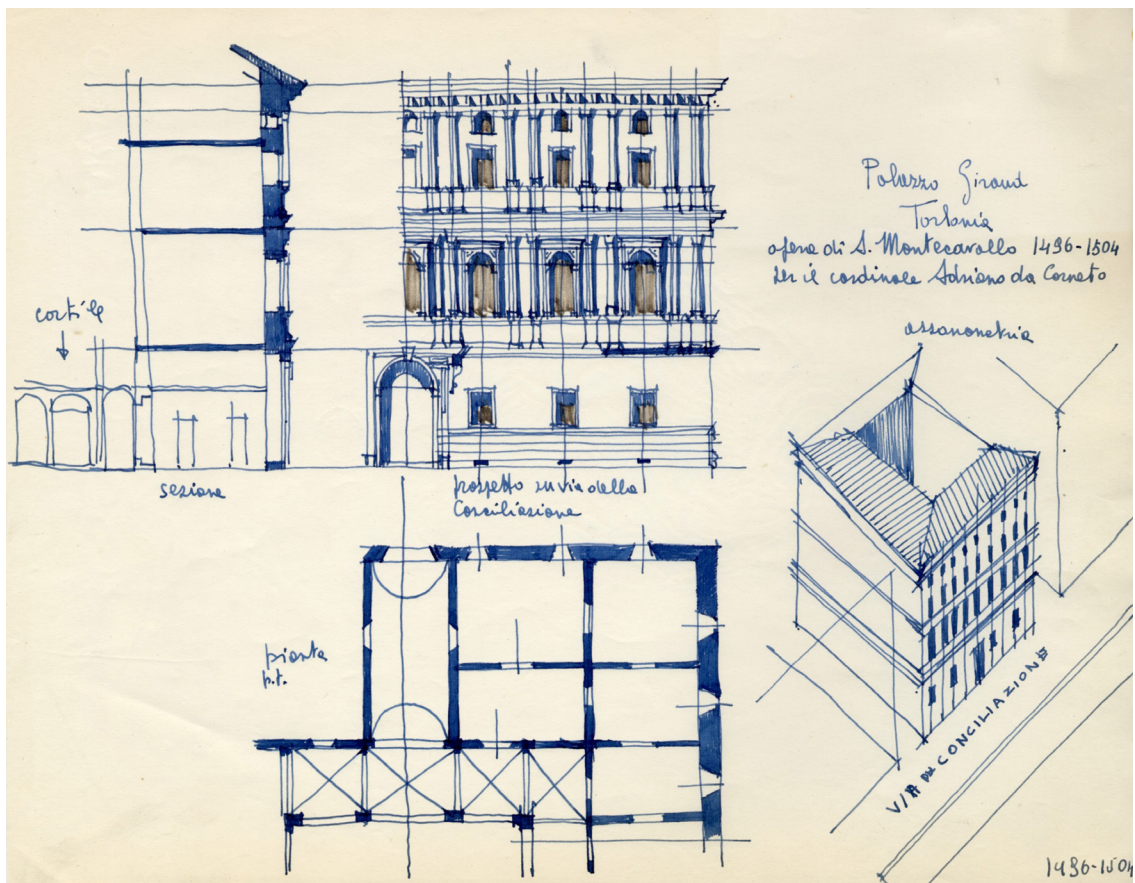 Palazzo Giraud
Torlonia
opera di A. Montecavallo 1496-1504
per il cardinale Adriano da Corneto
assonometria
cortile
sezione
prospetto su via della
Conciliazione
pianta
p.t.
VIA DELLA CONCILIAZIONE
1496-1504